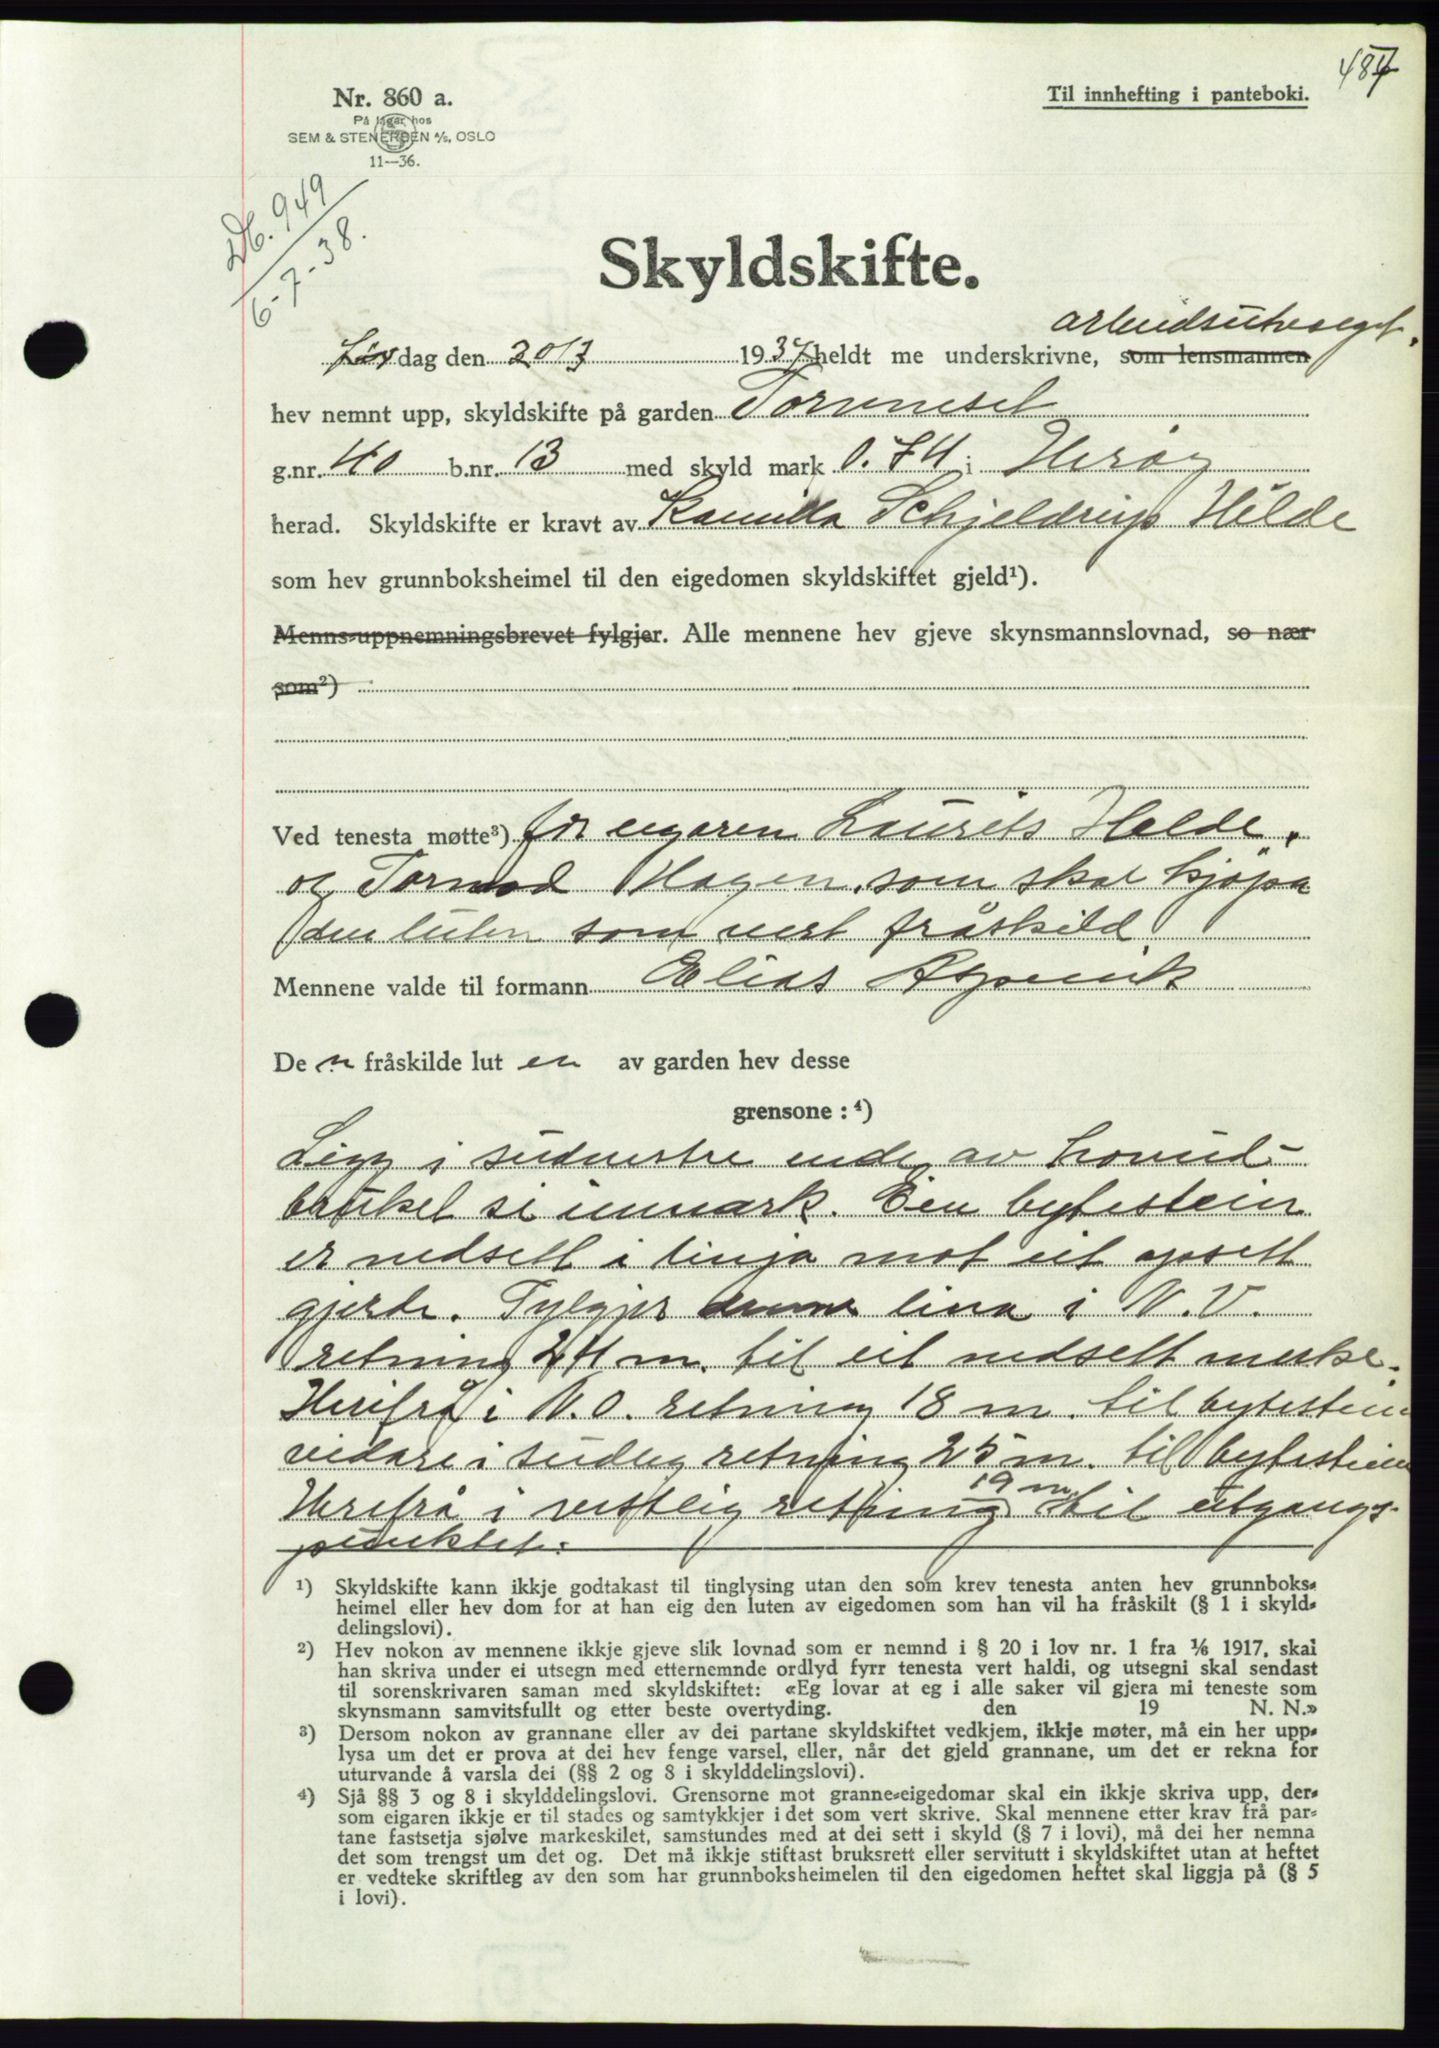 487
Nr. 860 a.
På lager hos
SEM & STENERSEN A/S, OSLO
11—36.
Til innhefting i panteboki.
Db. 949
6-7-38.
Skyldskifte.
arbeidsutvalget
Lør dag den 20/3 1937 heldt me underskrivne, som lensmannen
hev nemnt upp, skyldskifte på garden Torvneset
g.nr. 40 b.nr. 13 med skyld mark 0.74 i Herøy
herad. Skyldskifte er kravt av Kamilla Schjeldrup Hilde
som hev grunnboksheimel til den eigedomen skyldskiftet gjeld¹).
Menns-uppnemningsbrevet fylgjer. Alle mennene hev gjeve skynsmannslovnad, so nær
som²)
Ved tenesta møtte³) for eigaren Laurits Hilde,
og Tormod Hagen som skal kjöpa
den luten som vert fråskild
Mennene valde til formann Elias Aspevik
De n fråskilde lut en av garden hev desse
grensone : ⁴)
Ligg i sudvestre ende av hovud-
bruket si innmark. Ein bytestein
er nedsett i linja mot eit oppsett
gjerde. Fylgjer denne lina i N.V.
retning 24 m. til eit nedsett merke.
Herifrå i N.O. retning 18 m. til bytestein
vidare i sudleg retning 25 m. til bytestein
19 m
Herifrå i vestleg retning til utgangs-
punktet.
1) Skyldskifte kann ikkje godtakast til tinglysing utan den som krev tenesta anten hev grunnboks-
heimel eller hev dom for at han eig den luten av eigedomen som han vil ha fråskilt (§ 1 i skyld-
delingslovi).
2) Hev nokon av mennene ikkje gjeve slik lovnad som er nemnd i § 20 i lov nr. 1 fra 1/6 1917, skal
han skriva under ei utsegn med etternemnde ordlyd fyrr tenesta vert haldi, og utsegni skal sendast
til sorenskrivaren saman med skyldskiftet: «Eg lovar at eg i alle saker vil gjera mi teneste som
skynsmann samvitsfullt og etter beste overtyding. den 19 N. N.»
3) Dersom nokon av grannane eller av dei partane skyldskiftet vedkjem, ikkje møter, må ein her upp-
lysa um det er prova at dei hev fenge varsel, eller, når det gjeld grannane, um det er rekna for
uturvande å varsla dei (§§ 2 og 8 i skylddelingslovi).
4) Sjå §§ 3 og 8 i skylddelingslovi. Grensorne mot granne-eigedomar skal ein ikkje skriva upp, der-
som eigaren ikkje er til stades og samtykkjer i det som vert skrive. Skal mennene etter krav frå par-
tane fastsetja sjølve markeskilet, samstundes med at dei sett i skyld (§ 7 i lovi), må dei her nemna
det som trengst um det og. Det må ikkje stiftast bruksrett eller servitutt i skyldskiftet utan at heftet
er vedteke skriftleg av den som har grunnboksheimelen til den eigedomen heftet skal liggja på (§ 5
i lovi).